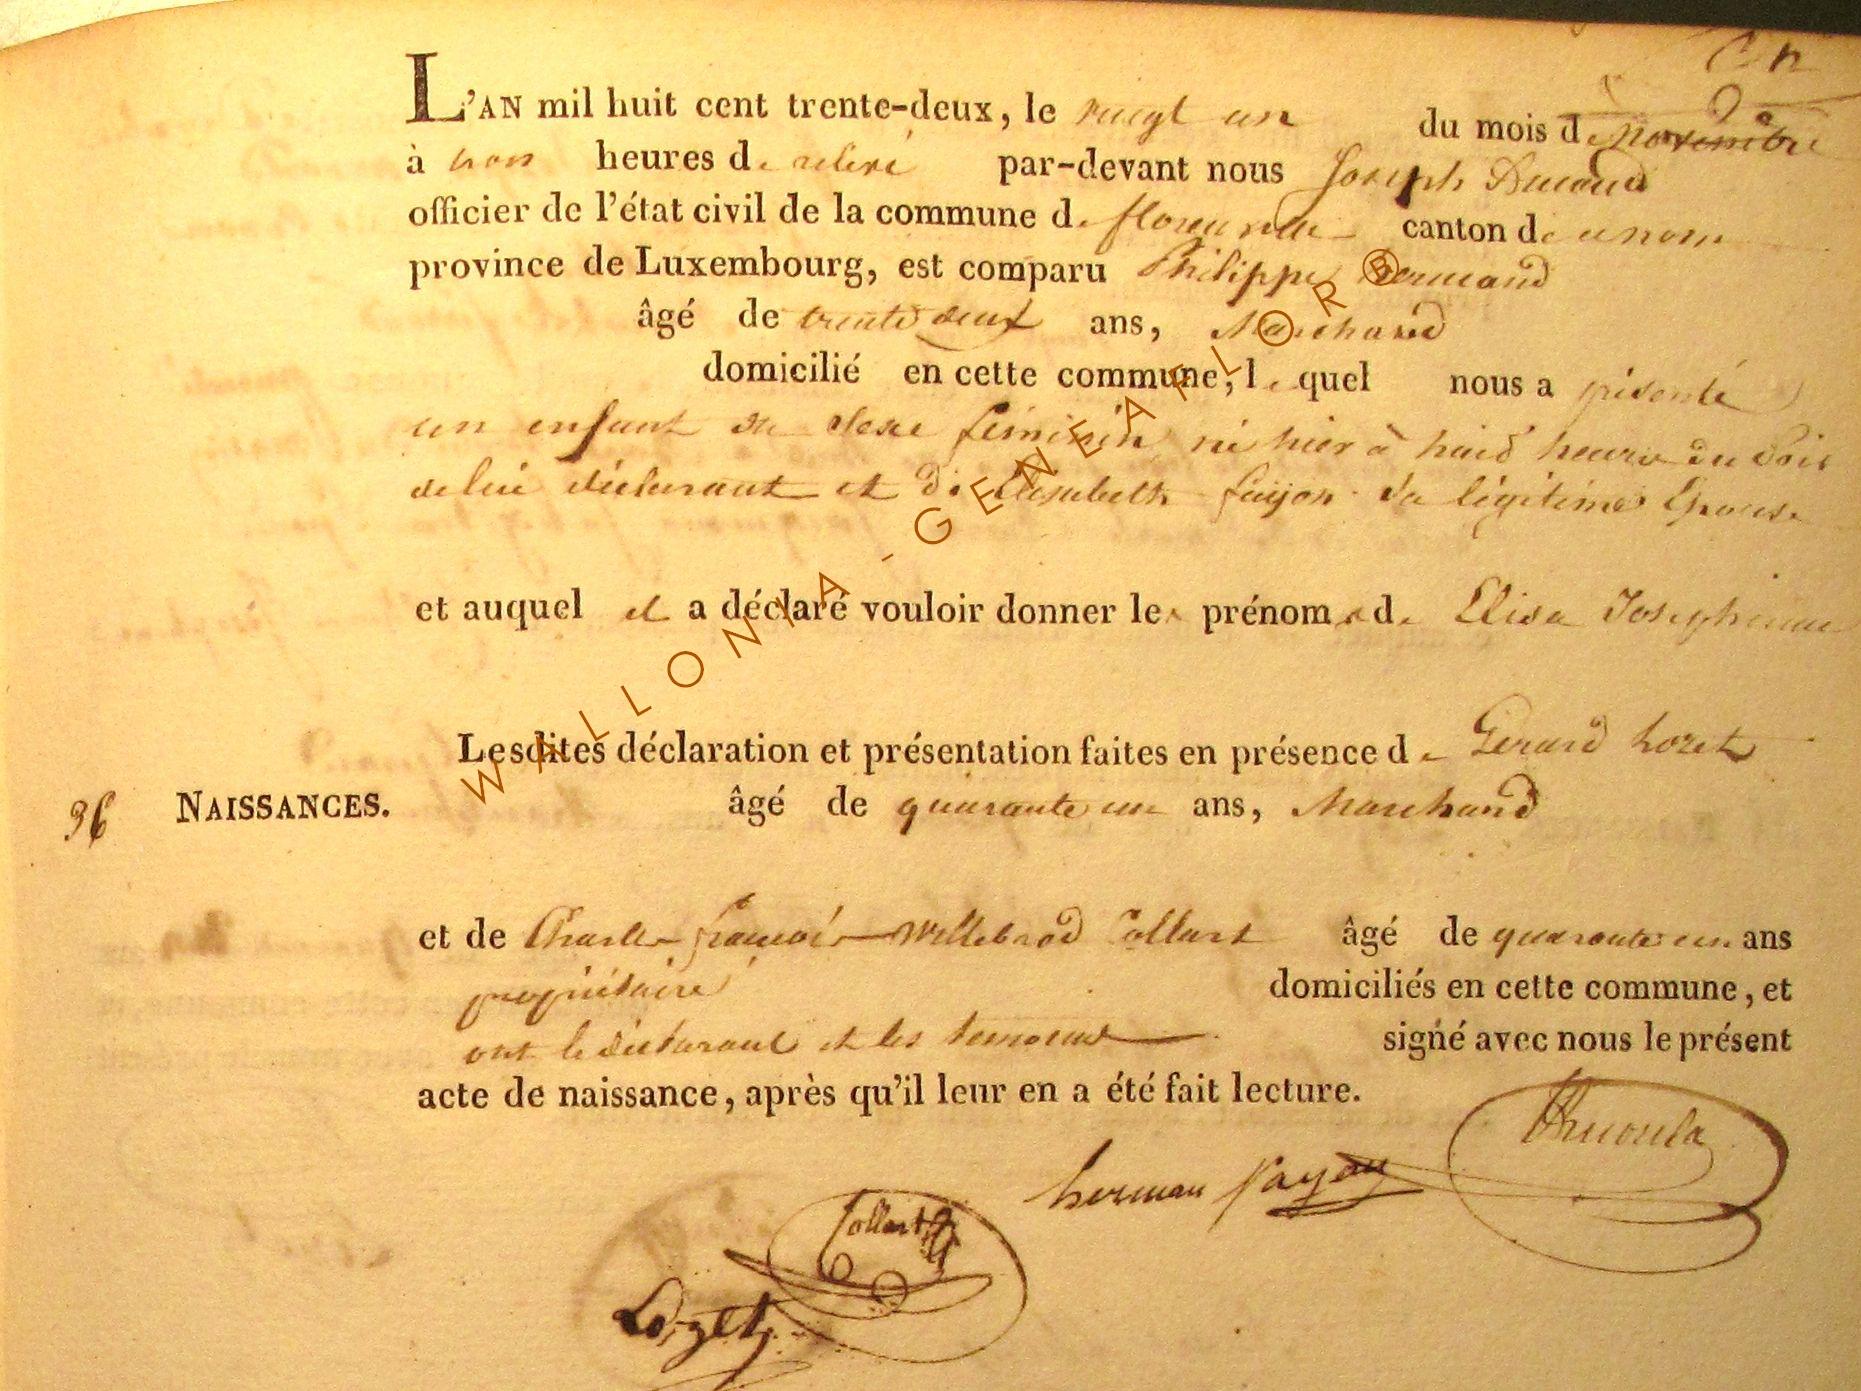 L'AN mil huit cent trente-deux, le vingt un du mois de novembre
à trois heures de relevé par-devant nous Joseph
officier de l'état civil de la commune de florenville canton de ce nom
province de Luxembourg, est comparu Philippe hermand
âgé de trente deux ans, Marchand
domicilié en cette commune, le quel nous a présenté
un enfant du sexe féminin né hier à huit heures du Soir
de lui déclarant et de Elisabeth sa légitime Epouse
et auquel il a déclaré vouloir donner les prénoms de Elisa Josephine
Lesdites déclaration et présentation faites en présence de Gerard Lozet
36 NAISSANCES. âgé de quarante un ans, Marchand
et de Charle françois Willebrod Collart âgé de quarante un ans
propriétaire domiciliés en cette commune, et
ont le déclarant et les temoins signé avec nous le présent
acte de naissance, après qu'il leur en a été fait lecture.
herman
Collart
Lozet
WALLONIA-GENEAFLORB